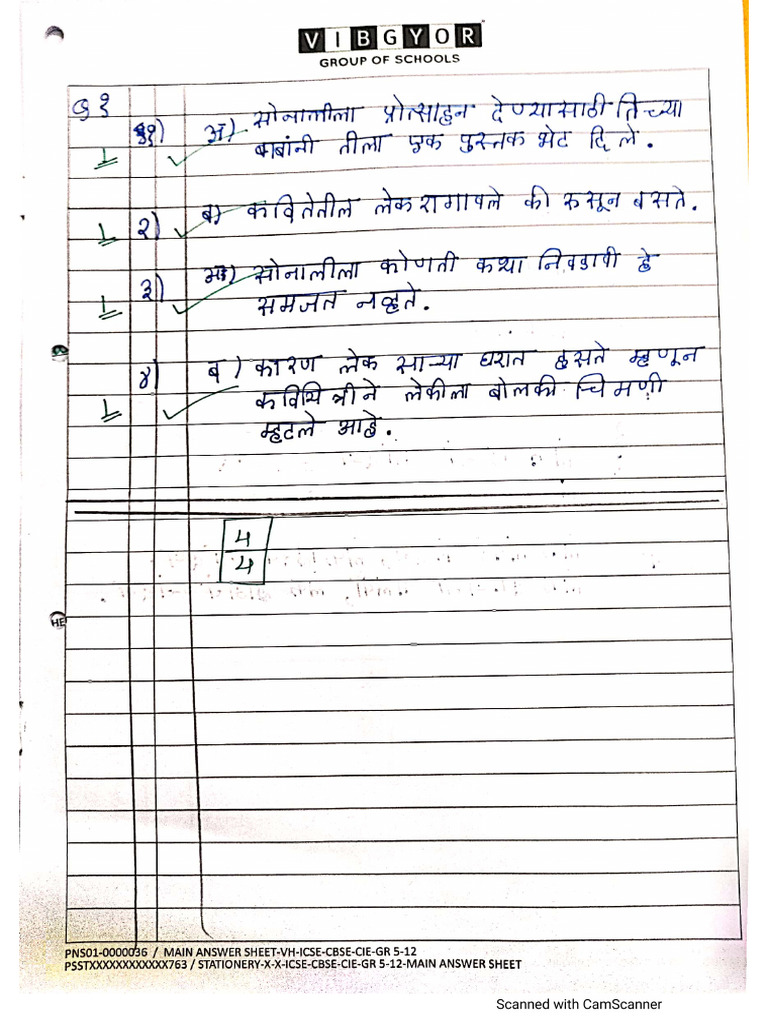 VIBGYOR
GROUP OF SCHOOLS
Q १
१) अ) सोनालीला प्रोत्साहन देण्यासाठी तिच्या
बाबांनी तीला एक पुस्तक भेट दिले.
1
२) ब) कवितेतील लेक रागावले की रुसून बसते.
1
३) अ) सोनालीला कोणती कथा निवडावी हे
समजत नव्हते.
1
४) ब) कारण लेक साऱ्या घरात हसते म्हणून
कवियित्रीने लेकीला बोलकी चिमणी
1
म्हटले आहे.
4
4
HE
PNS01-0000036 / MAIN ANSWER SHEET-VH-ICSE-CBSE-CIE-GR 5-12
PSSTXXXXXXXXXXXXX763 / STATIONERY-X-X-ICSE-CBSE-CIE-GR 5-12-MAIN ANSWER SHEET
Scanned with CamScanner